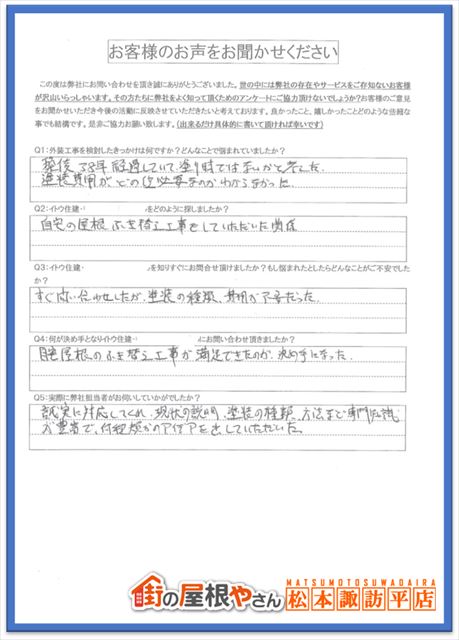 お客様のお声をお聞かせください
この度は弊社にお問い合わせを頂き誠にありがとうございました。世の中には弊社の存在やサービスをご存知ないお客様
が沢山いらっしゃいます。その方たちに弊社をよく知って頂くためのアンケートにご協力頂けないでしょうか?お客様のご意見
をお聞かせいただき今後の活動に反映させていただきたいと考えております。良かったこと、嬉しかったことどのような些細な
事でも結構です。是非ご協力お願い致します。(出来るだけ具体的に書いて頂ければ幸いです)
Q1:外装工事を検討したきっかけは何ですか?どんなことで悩まれていましたか?
築後38年経過していて、塗り時ではないかと考えた。
塗装費用がどの位必要なのかわからなかった
Q2:イトウ住建・をどのように探しましたか?
自宅の屋根ふき替え工事をしていただいた関係
Q3:イトウ住建・を知りすぐにお問合せ頂けましたか?もし悩まれたとしたらどんなことがご不安でした
か?
すぐ問い合わせしたが、塗装の種類、費用が不安だった。
Q4:何が決め手となりイトウ住建・にお問い合わせ頂けましたか?
屋根のふき替え工事が満足できたのが、決め手になった。
Q5:実際に弊社担当者がお伺いしていかがでしたか?
誠実に対応してくれ、現状の説明、塗装の種類、方法まで専門知識
が豊富で、何種類かのアイデアを出していただいた。
街の屋根やさん
MATSUMOTOSUWADAIRA
松本諏訪平店